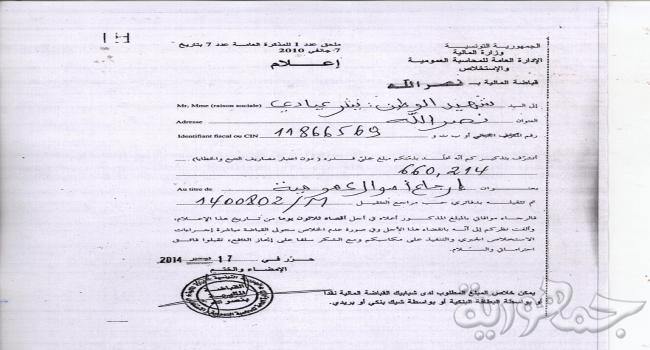 ملحق عدد 1 للمذكرة العامة عدد 7 بتاريخ
7 جانفي 2010
إعلام
الجمهورية التونسية
وزارة المالية
الإدارة العامة للمحاسبة العمومية
والإستخلاص
قباضة المالية بـ نصر الله
Mr, Mme (raison sociale) إلى السيد شهيد الوطن: بشر عبادي
Adresse العنوان نصر الله
Identifiant fiscal ou CIN 11866569
أتشرف بتذكيركم أنه تخلد بذمتكم مبلغ جملي قدره (دون اعتبار مصاريف التتبع والخطايا)
660,214
Au titre de بعنوان إرجاع أموال عمومية
تم تثقيله بدفاتري حسب مراجع التثقيل 1400802/M
فالرجاء موافاتي بالمبلغ المذكور أعلاه في أجل أقصاه ثلاثون يوما من تاريخ هذا الإعلام،
وألفت نظركم إلى أنه بانقضاء هذا الأجل وفي صورة عدم الخلاص ستتولى القباضة مباشرة إجراءات
الاستخلاص الجبري والتنفيذ على مكاسبكم ومع الشكر سلفا على إنجاز الدفع، تقبلوا فائق
احتراماتي والسلام
حرر في 17 ديسمبر 2014
الإمضاء والختم
القباضة
المالية
بنصر الله
يمكن خلاص المبلغ المطلوب لدى شبابيك القباضة المالية نقدا
أو بواسطة البطاقة البنكية أو بواسطة شيك بنكي أو بريدي.
جمهورية